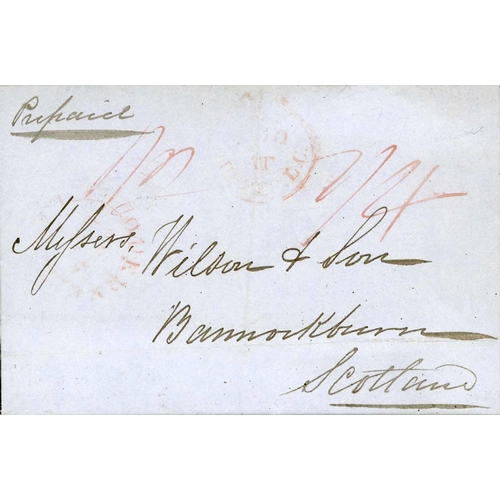 Prepaid
Messrs. Wilson & Son
Bannockburn
Scotland